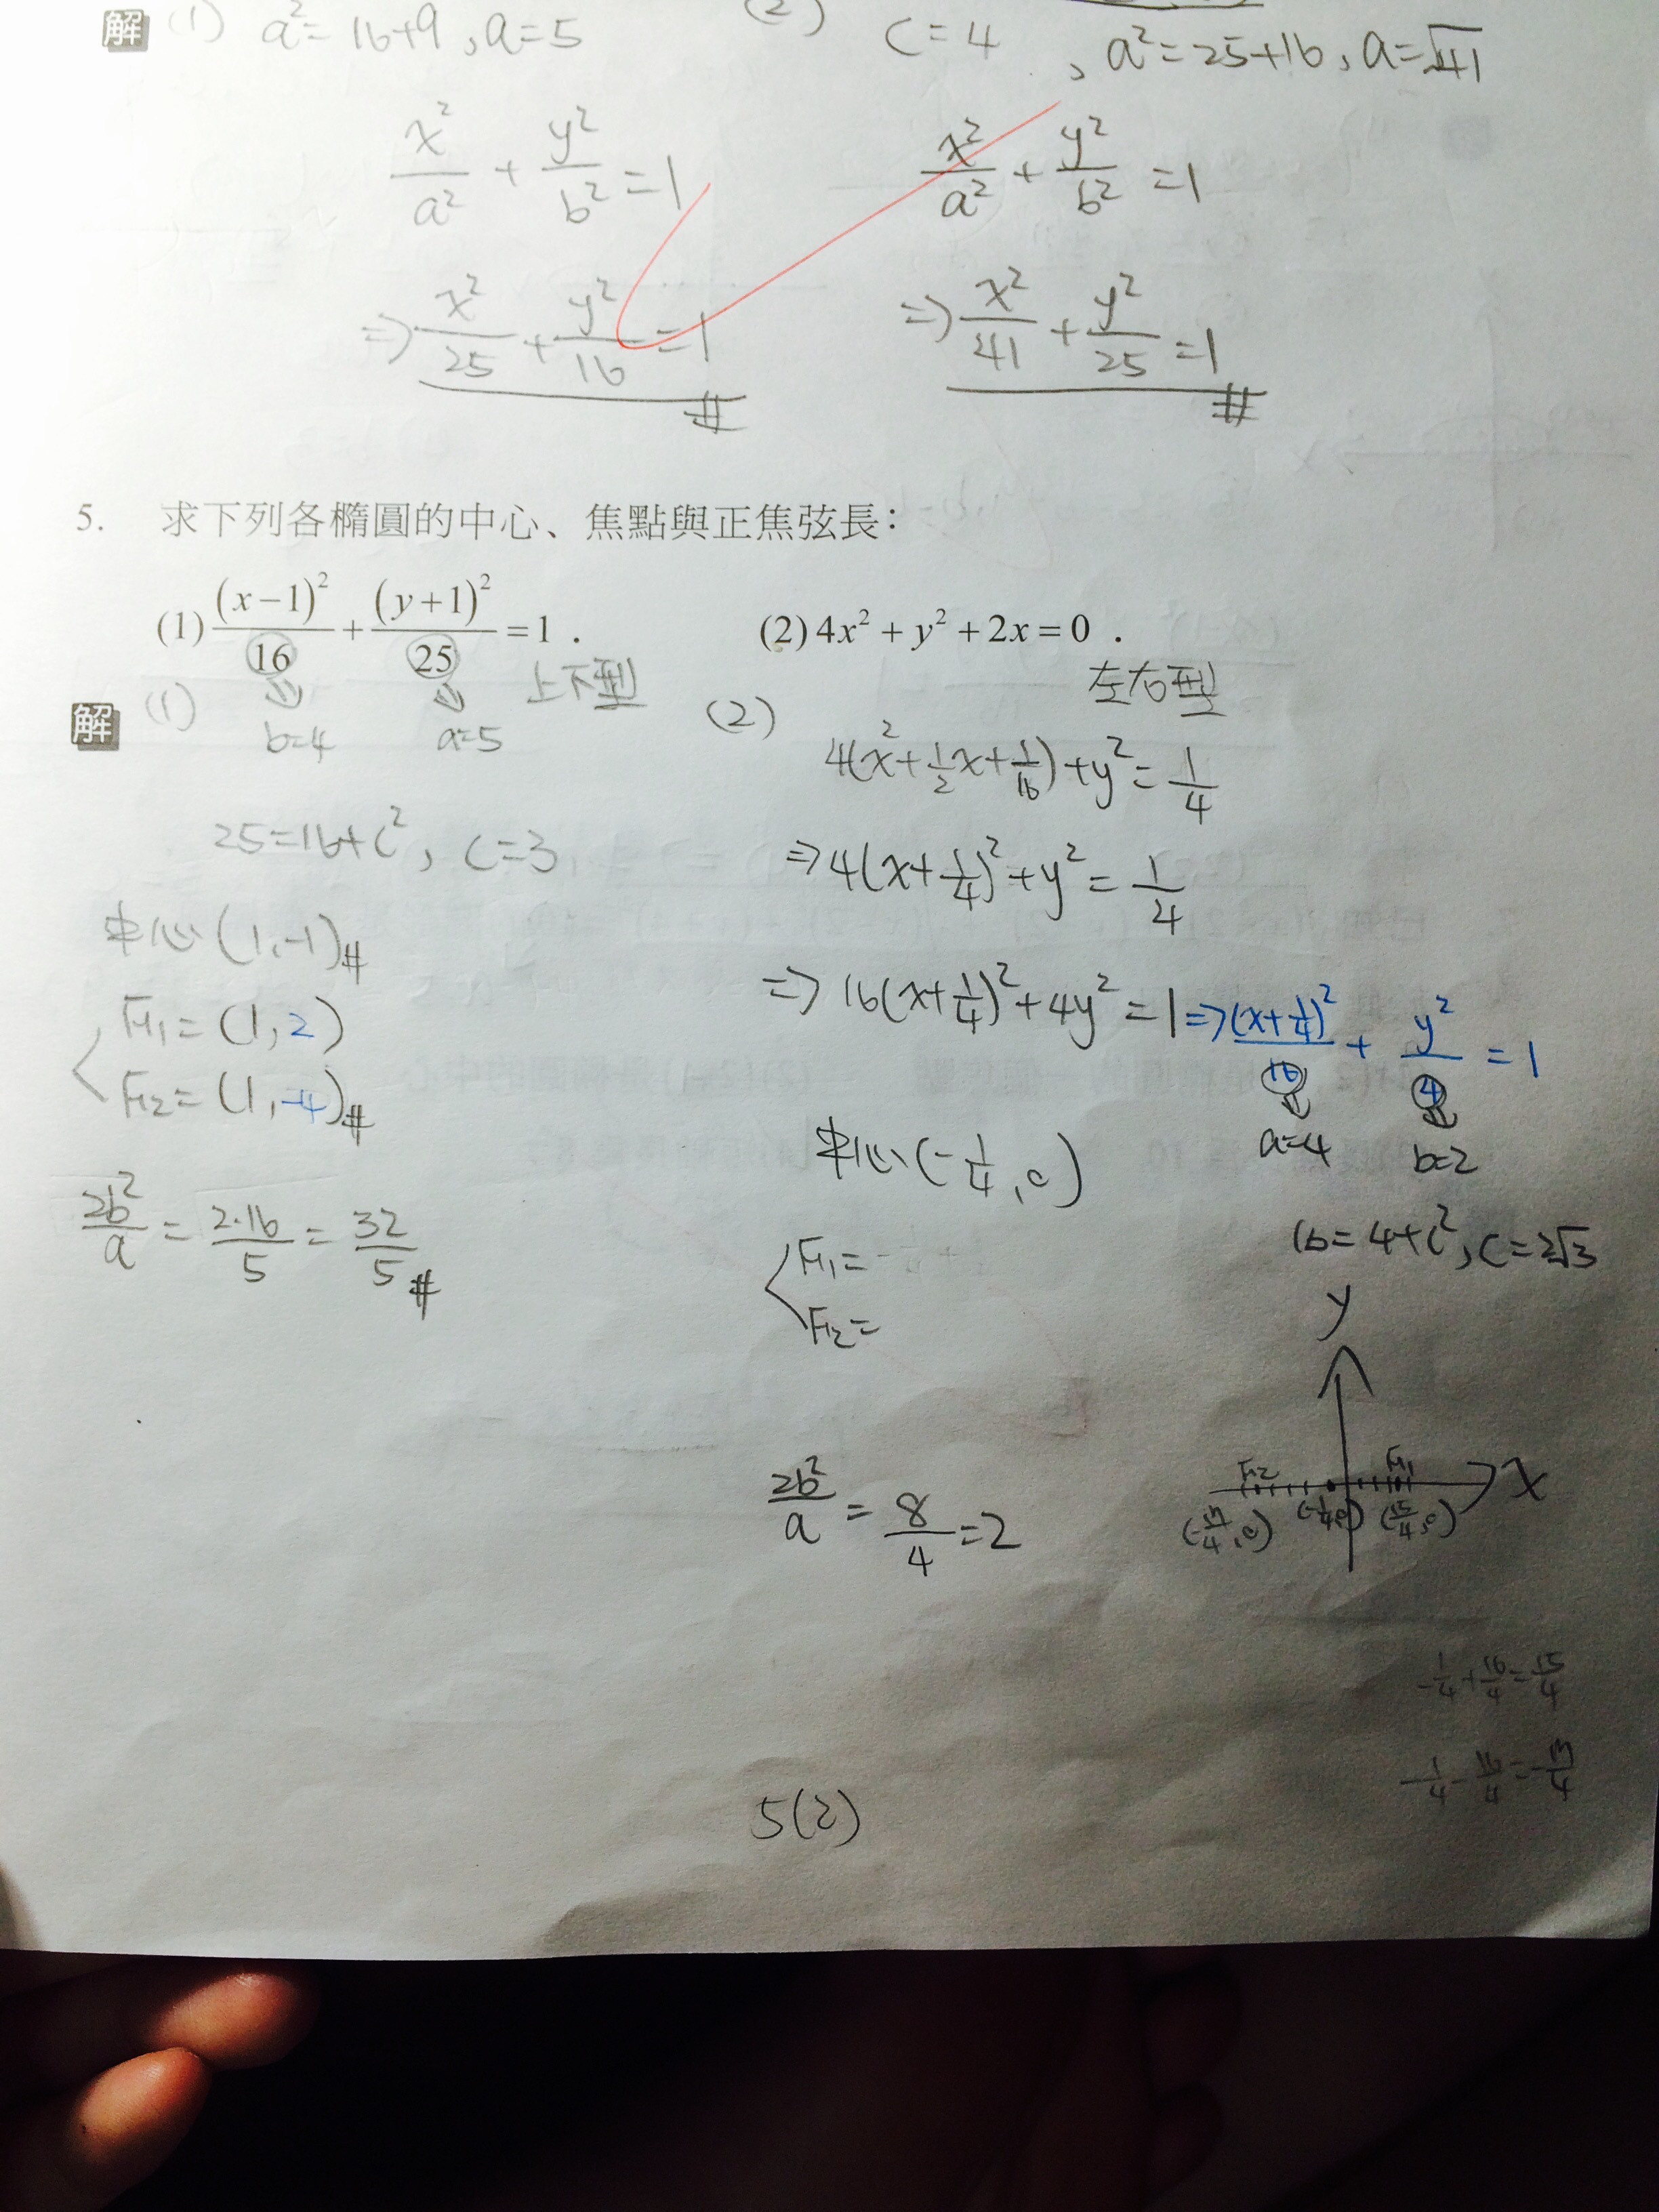 解 (1) a²=16+9,a=5 (2) c=4 , a²=25+16, a=√41
x²/a² + y²/b² =1 x²/a² + y²/b² =1
⇒ x²/25 + y²/16 =1 # ⇒ x²/41 + y²/25 =1 #
5. 求下列各橢圓的中心、焦點與正焦弦長:
(1) (x−1)²/16 + (y+1)²/25 =1 . (2) 4x²+y²+2x=0 .
上下型 左右型
解 (1) b=4 a=5
25=16+c², c=3
中心(1,-1)#
F₁=(1,2)
F₂=(1,-4)#
2b²/a = 2·16/5 = 32/5 #
(2)
4(x²+1/2x+1/16)+y²=1/4
⇒4(x+1/4)²+y²=1/4
⇒16(x+1/4)²+4y²=1⇒(x+1/4)²/16 + y²/4 =1
a=4 b=2
中心(-1/4,0)
16=4+c²,c=2√3
F₁=
F₂=
y
F₂ F₁ x
(-17/4,0) (-1/4,0) (15/4,0)
2b²/a = 8/4 =2
-1/4+16/4=15/4
-1/4-16/4=-17/4
5(2)